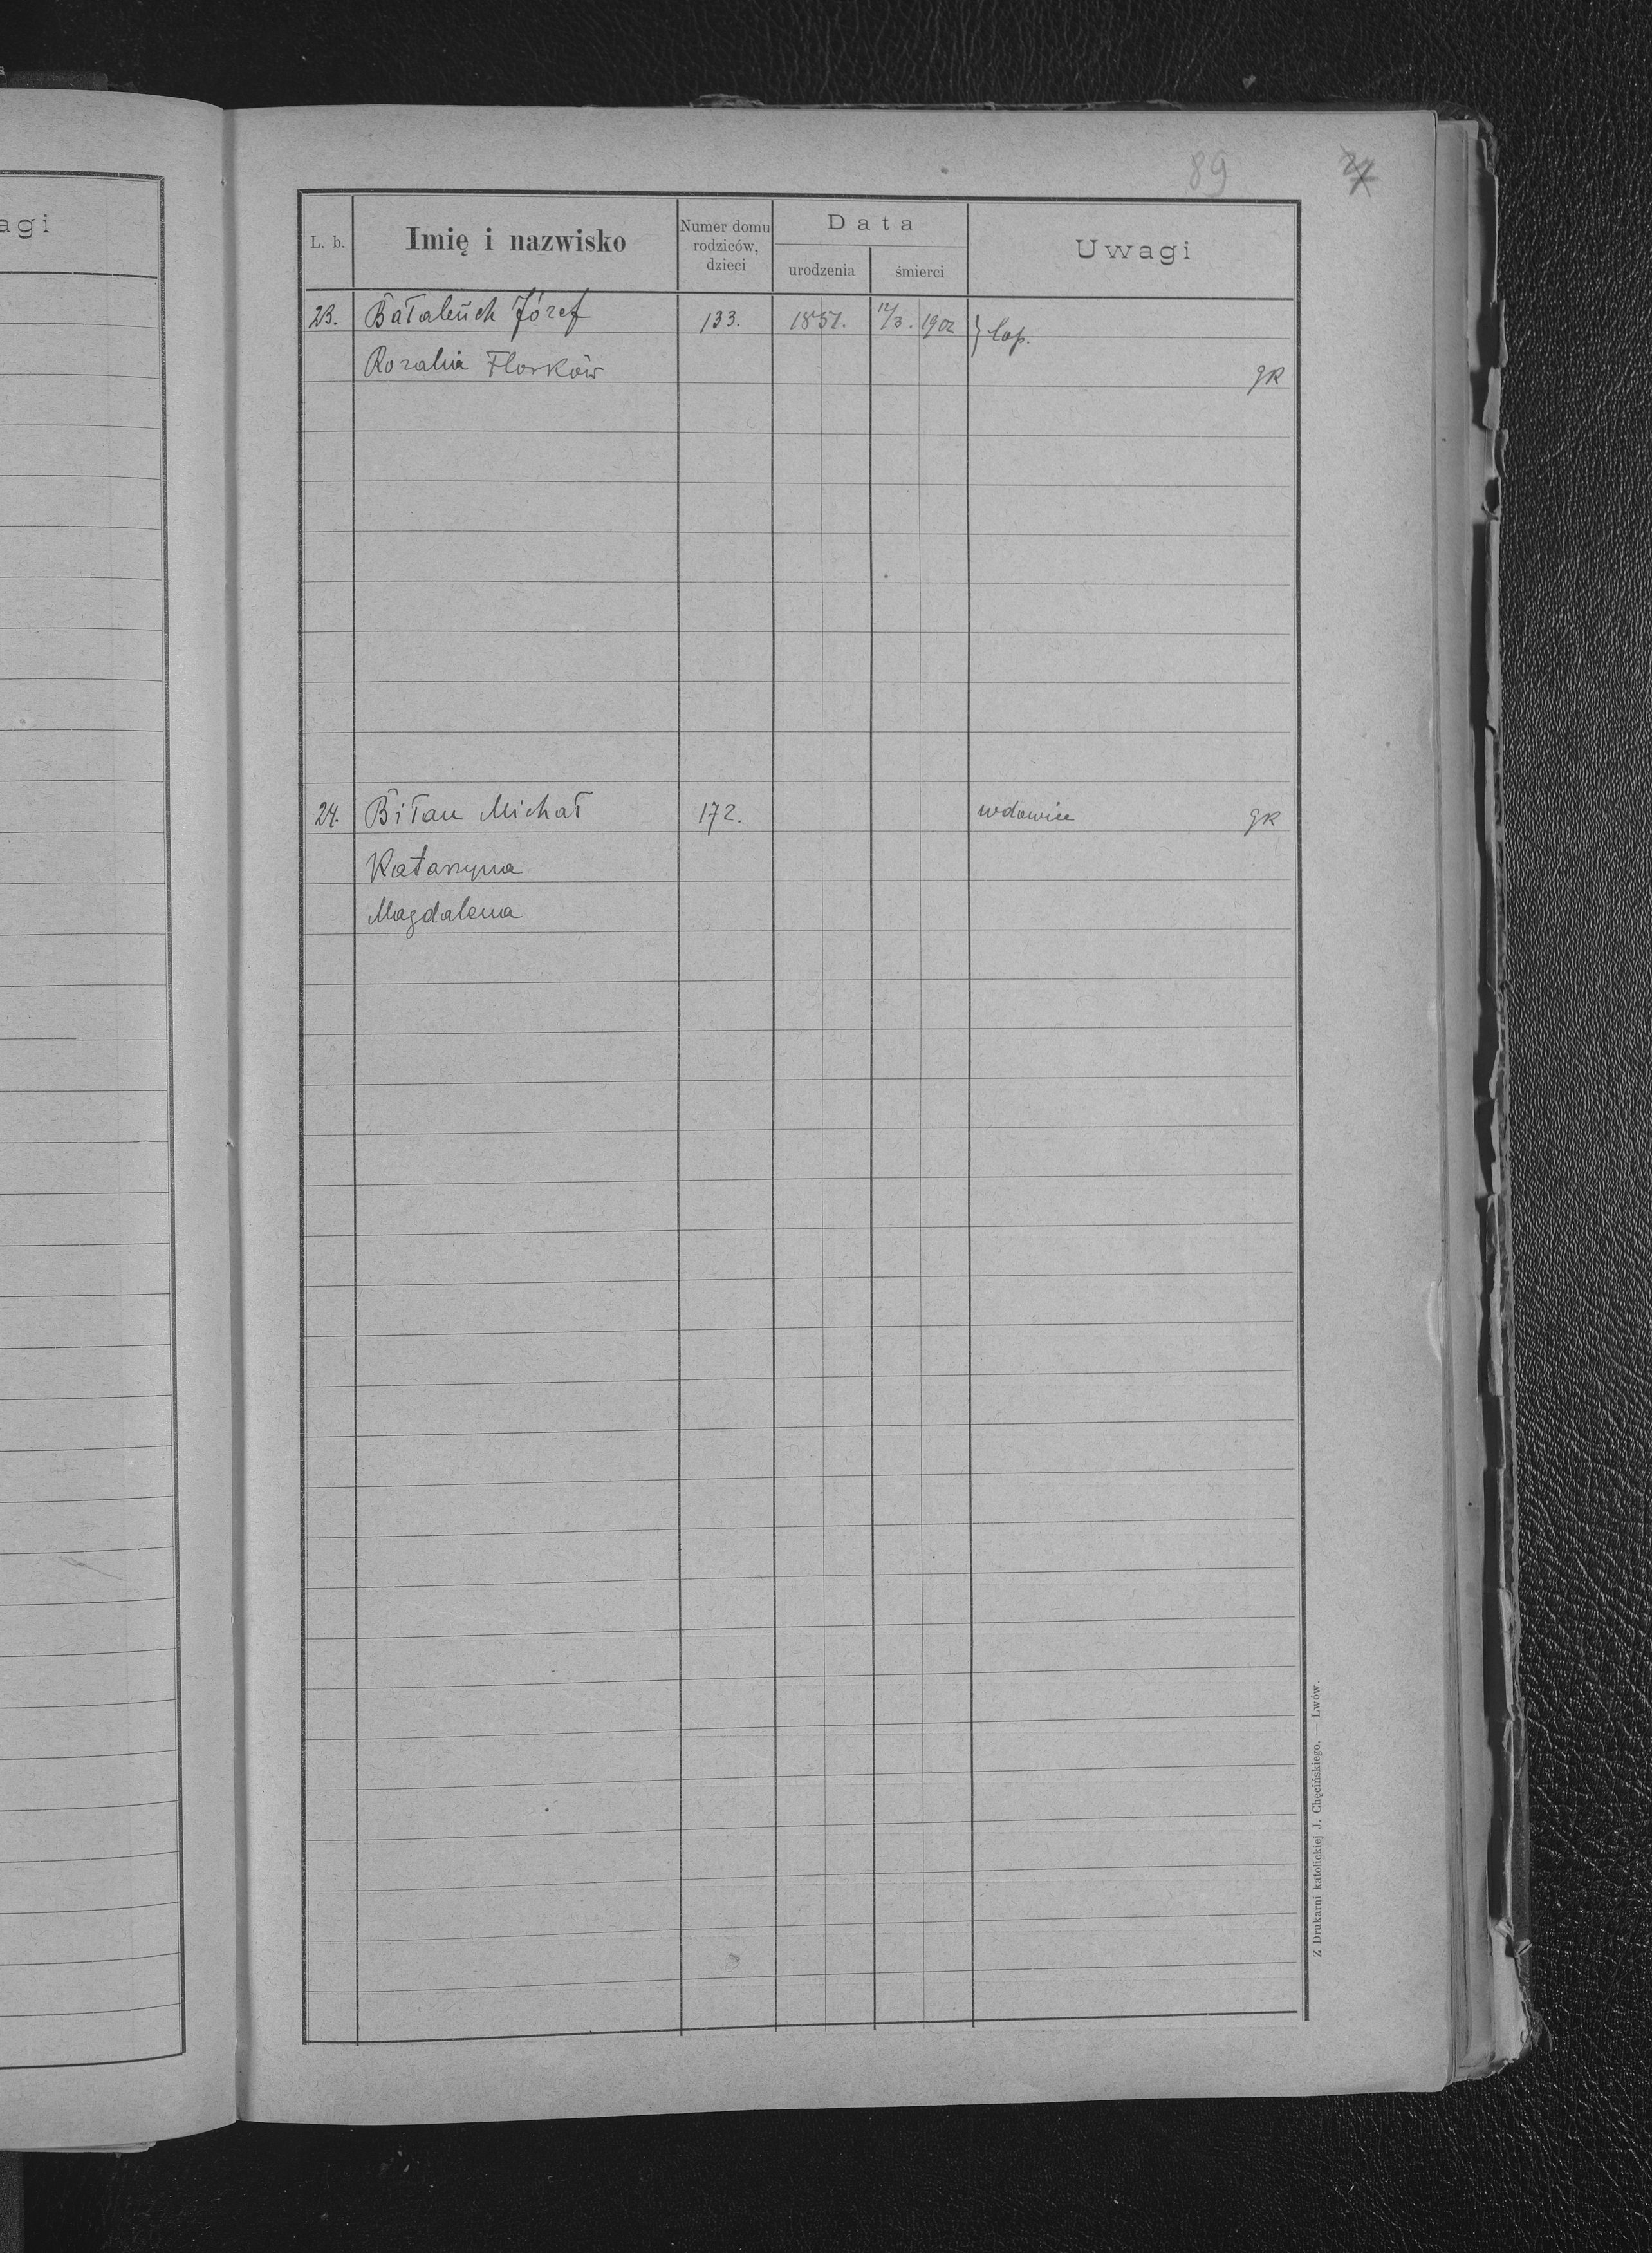 agi
89
L. b.
Imię i nazwisko
Numer domu
rodziców,
dzieci
Data
urodzenia
śmierci
Uwagi
23. Bałabuch Józef 133. 1851. 12/3. 1902 } łap.
Rozalia Florków gR
24. Biłan Michał 172. wdowiec gR
Katarzyna
Magdalena
Z Drukarni katolickiej J. Chęcińskiego. — Lwów.